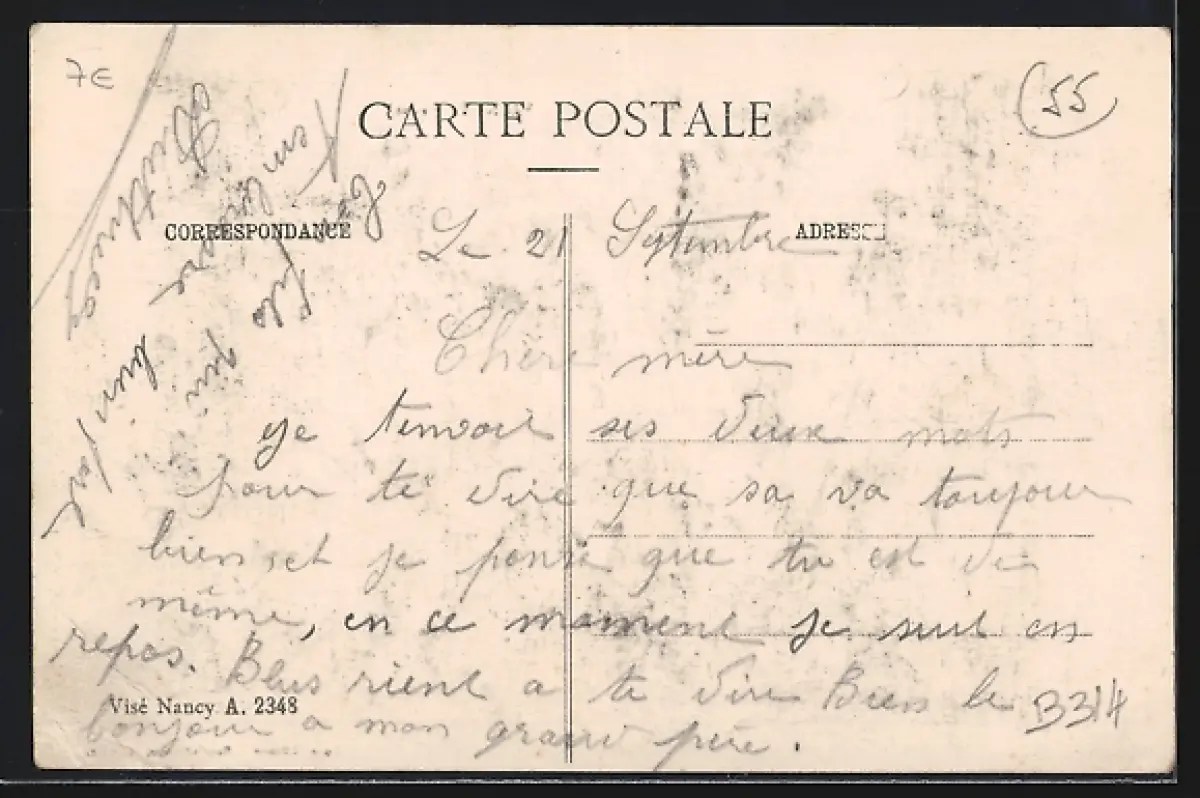 7€
55
CARTE POSTALE
CORRESPONDANCE
ADRESSE
Le 21 Septembre
Chère mère
Je tenvoit ses deux mots
pour te dire que sa va toujour
bien et je pense que tu est de
même, en ce moment je suit en
repos. Blus rient a te dire Bien le
bonjour a mon grand père.
Visé Nancy A. 2348
B314
Ton